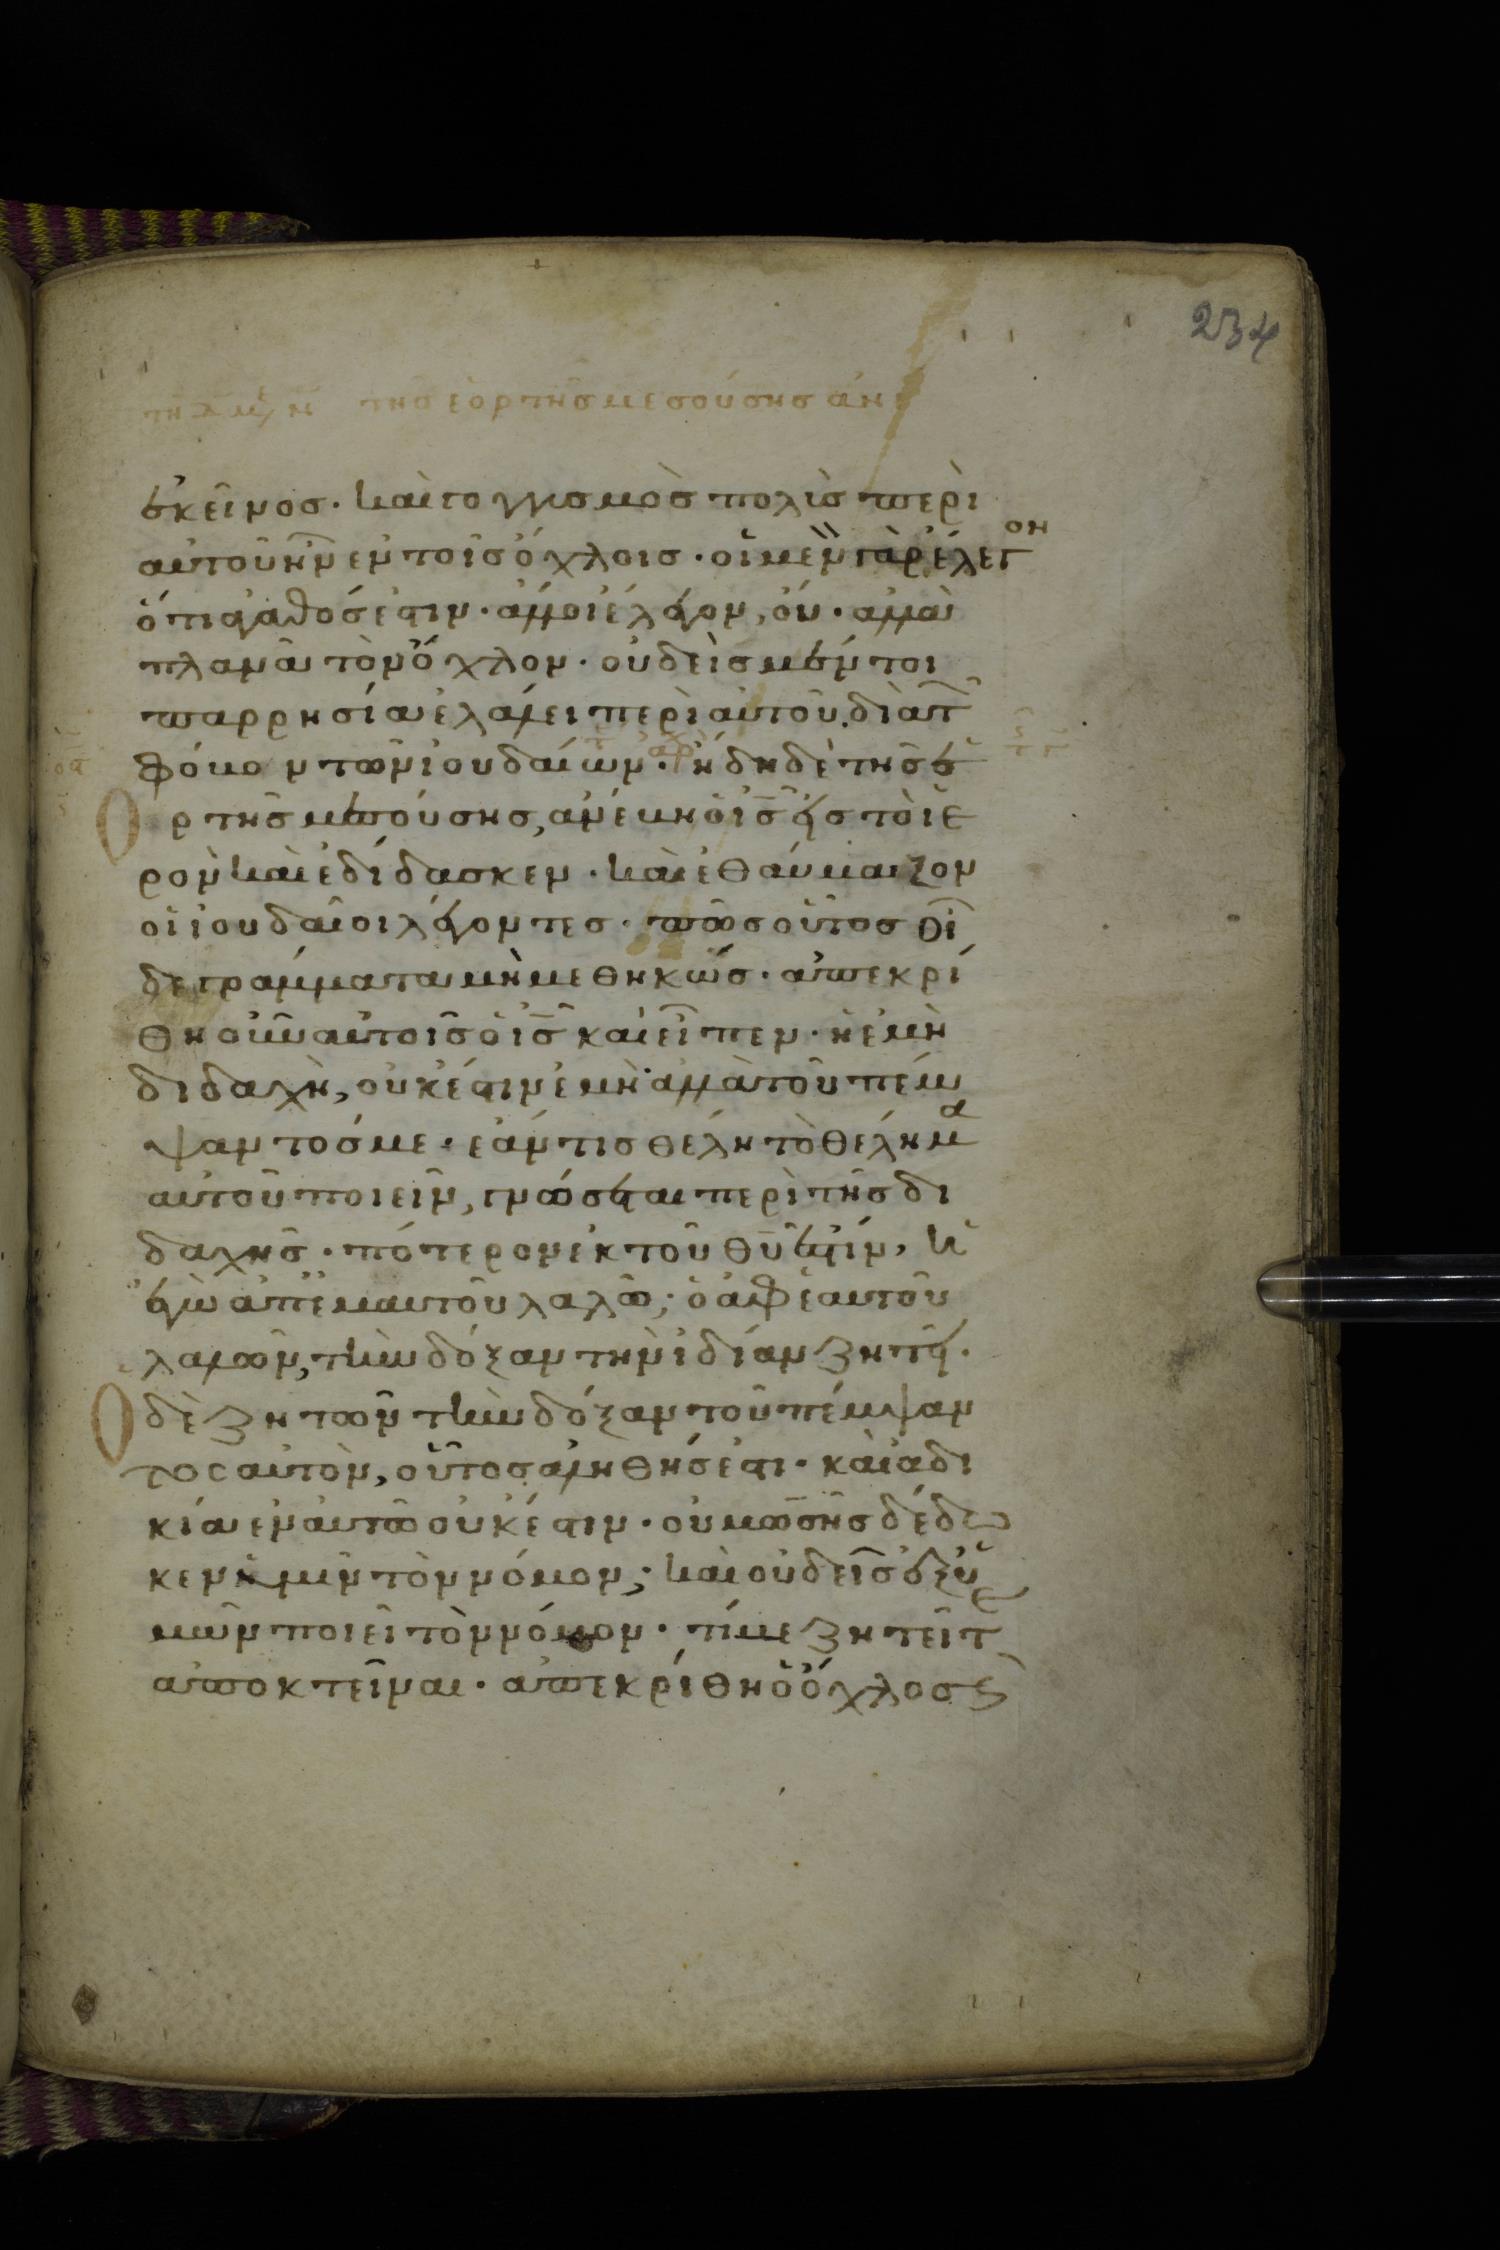 234
τῆς ἑορτῆς μεσούσης ἀν
ἐκεῖνος· καὶ γογγυσμὸς πολὺς περὶ
αὐτοῦ ἦν ἐν τοῖς ὄχλοις· οἱ μὲν γὰρ ἔλεγον
ὅτι ἀγαθός ἐστιν· ἄλλοι ἔλεγον, οὔ· ἀλλὰ
πλανᾶ τὸν ὄχλον· οὐδεὶς μέντοι
παρρησία ἐλάλει περὶ αὐτοῦ, διὰ τὸν
φόβον τῶν ἰουδαίων· ἤδη δὲ τῆς ἑ
ορτῆς μεσούσης, ἀνέβη ὁ ις εἰς τὸ ἱε
ρὸν καὶ ἐδίδασκεν· καὶ ἐθαύμαζον
οἱ ἰουδαῖοι λέγοντες· πῶς οὗτος οἶ
δε γράμματα μὴ μεθηκώς· ἀπεκρί
θη οὖν αὐτοῖς ὁ ις καὶ εἶπεν· ἡ ἐμὴ
διδαχὴ, οὐκ ἔστιν ἐμὴ· ἀλλὰ τοῦ πέμ
ψαντός με· ἐάν τις θέλη τὸ θέλημα
αὐτοῦ ποιεῖν, γνώσεται περὶ τῆς δι
δαχῆς· πότερον ἐκ τοῦ θυ ἐστίν, ἢ
ἐγὼ ἀπ' ἐμαυτοῦ λαλῶ; ὁ ἀφ' ἑαυτοῦ
λαλῶν, τὴν δόξαν τὴν ἰδίαν ζητεῖ·
Ὁ δὲ ζητῶν τὴν δόξαν τοῦ πέμψαν
τος αὐτὸν, οὗτος ἀληθής ἐστι· καὶ ἀδι
κία ἐν αὐτῶ οὐκ ἔστιν· οὐ μωσῆς δέδω
κεν ὑμῖν τὸν νόμον; καὶ οὐδεὶς ἐξ ὑ
μῶν ποιεῖ τὸν νόμον· τί με ζητεῖτε
ἀποκτεῖναι· ἀπεκρίθη ὁ ὄχλος καὶ